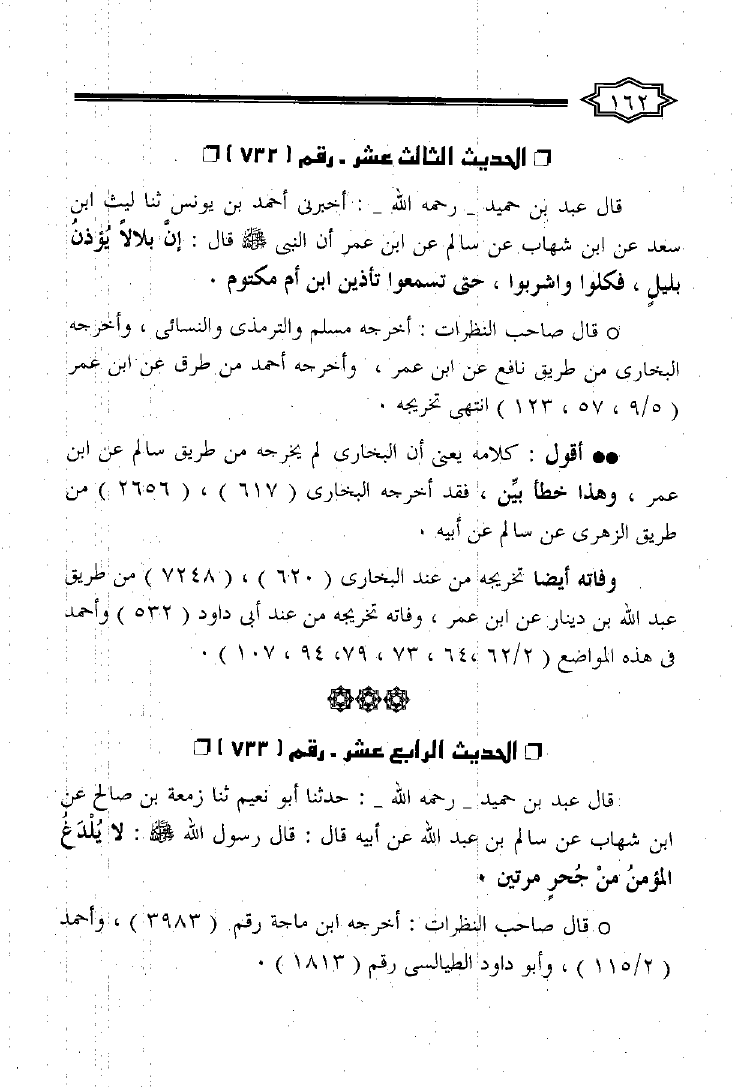 ١٦٢
❐ الحديث الثالث عشر ـ رقم ( ٧٣٢ ) ❐
قال عبد بن حميد _ رحمه الله _ : أخبرنى أحمد بن يونس ثنا ليث ابن
سعد عن ابن شهاب عن سالم عن ابن عمر أن النبى ﷺ قال : إنَّ بلالاً يُؤذنُ
بليلٍ ، فكلوا واشربوا ، حتى تسمعوا تأذين ابن أم مكتوم .
○ قال صاحب النظرات : أخرجه مسلم والترمذى والنسائى ، وأخرجه
البخارى من طريق نافع عن ابن عمر ، وأخرجه أحمد من طرق عن ابن عمر
( ٩/٥ ، ٥٧ ، ١٢٣ ) انتهى تخريجه .
●● أقول : كلامه يعنى أن البخارى لم يخرجه من طريق سالم عن ابن
عمر ، وهذا خطأ بيِّن ، فقد أخرجه البخارى ( ٦١٧ ) ، ( ٢٦٥٦ ) من
طريق الزهرى عن سالم عن أبيه .
وفاته أيضا تخريجه من عند البخارى ( ٦٢٠ ) ، ( ٧٢٤٨ ) من طريق
عبد الله بن دينار عن ابن عمر ، وفاته تخريجه من عند أبى داود ( ٥٣٢ ) وأحمد
فى هذه المواضع ( ٦٢/٢ ،٦٤ ، ٧٣ ، ٧٩، ٩٤ ، ١٠٧ ) .
❐ الحديث الرابع عشر ـ رقم ( ٧٣٣ ) ❐
قال عبد بن حميد _ رحمه الله _ : حدثنا أبو نعيم ثنا زمعة بن صالح عن
ابن شهاب عن سالم بن عبد الله عن أبيه قال : قال رسول الله ﷺ : لا يُلْدَغُ
المؤمنُ منْ جُحرٍ مرتين .
○ قال صاحب النظرات : أخرجه ابن ماجة رقم ( ٣٩٨٣ ) ، وأحمد
( ١١٥/٢ ) ، وأبو داود الطيالسى رقم ( ١٨١٣ ) .